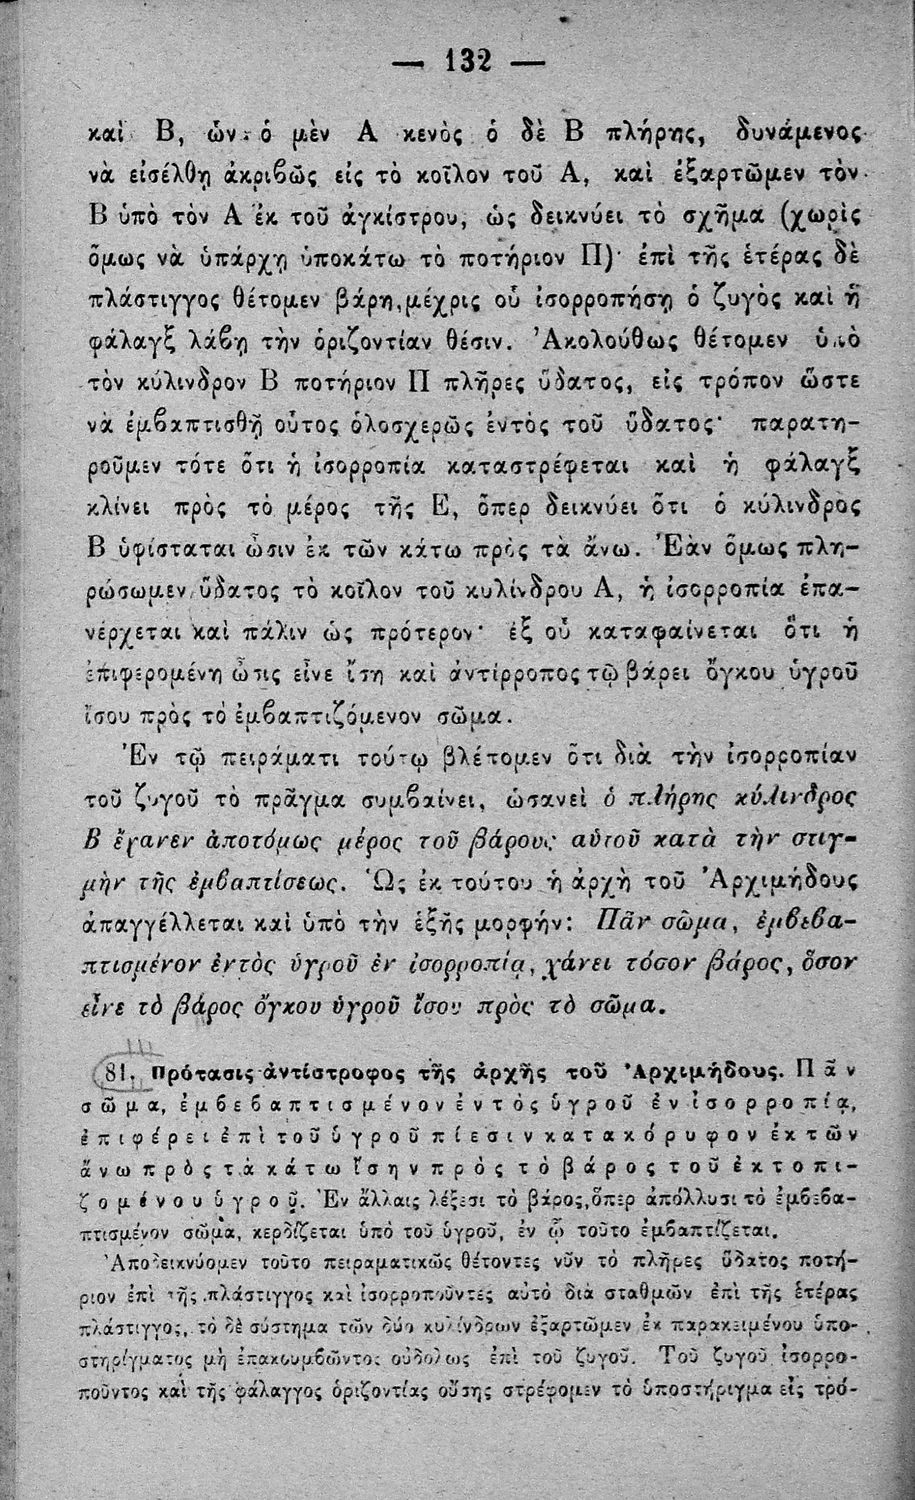 — 132 —
καὶ Β, ὧν ὁ μὲν Α κενὸς ὁ δὲ Β πλήρης, δυνάμενος
νὰ εἰσέλθῃ ἀκριβῶς εἰς τὸ κοῖλον τοῦ Α, καὶ ἐξαρτῶμεν τὸν
Β ὑπὸ τὸν Α ἐκ τοῦ ἀγκίστρου, ὡς δεικνύει τὸ σχῆμα (χωρὶς
ὅμως νὰ ὑπάρχῃ ὑποκάτω τὸ ποτήριον Π)· ἐπὶ τῆς ἑτέρας δὲ
πλάστιγγος θέτομεν βάρη, μέχρις οὗ ἰσορροπήσῃ ὁ ζυγὸς καὶ ἡ
φάλαγξ λάβῃ τὴν ὁριζοντίαν θέσιν. Ἀκολούθως θέτομεν ὑπὸ
τὸν κύλινδρον Β ποτήριον Π πλῆρες ὕδατος, εἰς τρόπον ὥστε
νὰ ἐμβαπτισθῇ οὗτος ὁλοσχερῶς ἐντὸς τοῦ ὕδατος· παρατη-
ροῦμεν τότε ὅτι ἡ ἰσορροπία καταστρέφεται καὶ ἡ φάλαγξ
κλίνει πρὸς τὸ μέρος τῆς Ε, ὅπερ δεικνύει ὅτι ὁ κύλινδρος
Β ὑφίσταται ὦσιν ἐκ τῶν κάτω πρὸς τὰ ἄνω. Ἐὰν ὅμως πλη-
ρώσωμεν ὕδατος τὸ κοῖλον τοῦ κυλίνδρου Α, ἡ ἰσορροπία ἐπα-
νέρχεται καὶ πάλιν ὡς πρότερον· ἐξ οὗ καταφαίνεται ὅτι ἡ
ἐπιφερομένη ὦσις εἶνε ἴση καὶ ἀντίρροπος τῷ βάρει ὄγκου ὑγροῦ
ἴσου πρὸς τὸ ἐμβαπτιζόμενον σῶμα.
Ἐν τῷ πειράματι τούτῳ βλέπομεν ὅτι διὰ τὴν ἰσορροπίαν
τοῦ ζυγοῦ τὸ πρᾶγμα συμβαίνει, ὡσανεὶ ὁ πλήρης κύλινδρος
Β ἔχανεν ἀποτόμως μέρος τοῦ βάρους αὑτοῦ κατὰ τὴν στιγ-
μὴν τῆς ἐμβαπτίσεως. Ὡς ἐκ τούτου ἡ ἀρχὴ τοῦ Ἀρχιμήδους
ἀπαγγέλλεται καὶ ὑπὸ τὴν ἑξῆς μορφήν: Πᾶν σῶμα, ἐμβεβα-
πτισμένον ἐντὸς ὑγροῦ ἐν ἰσορροπίᾳ, χάνει τόσον βάρος, ὅσον
εἶνε τὸ βάρος ὄγκου ὑγροῦ ἴσου πρὸς τὸ σῶμα.
81. Πρότασις ἀντίστροφος τῆς ἀρχῆς τοῦ Ἀρχιμήδους. Πᾶν
σῶμα, ἐμβεβαπτισμένον ἐντὸς ὑγροῦ ἐν ἰσορροπίᾳ,
ἐπιφέρει ἐπὶ τοῦ ὑγροῦ πίεσιν κατακόρυφον ἐκ τῶν
ἄνω πρὸς τὰ κάτω ἴσην πρὸς τὸ βάρος τοῦ ἐκτοπι-
ζομένου ὑγροῦ. Ἐν ἄλλαις λέξεσι τὸ βάρος, ὅπερ ἀπόλλυσι τὸ ἐμβεβα-
πτισμένον σῶμα, κερδίζεται ὑπὸ τοῦ ὑγροῦ, ἐν ᾧ τοῦτο ἐμβαπτίζεται.
Ἀποδεικνύομεν τοῦτο πειραματικῶς θέτοντες νῦν τὸ πλῆρες ὕδατος ποτή-
ριον ἐπὶ τῆς πλάστιγγος καὶ ἰσορροποῦντες αὐτὸ διὰ σταθμῶν ἐπὶ τῆς ἑτέρας
πλάστιγγος, τὸ δὲ σύστημα τῶν δύο κυλίνδρων ἐξαρτῶμεν ἐκ παρακειμένου ὑπο-
στηρίγματος μὴ ἐπακουμβῶντος οὐδόλως ἐπὶ τοῦ ζυγοῦ. Τοῦ ζυγοῦ ἰσορρο-
ποῦντος καὶ τῆς φάλαγγος ὁριζοντίας οὔσης στρέφομεν τὸ ὑποστήριγμα εἰς τρό-